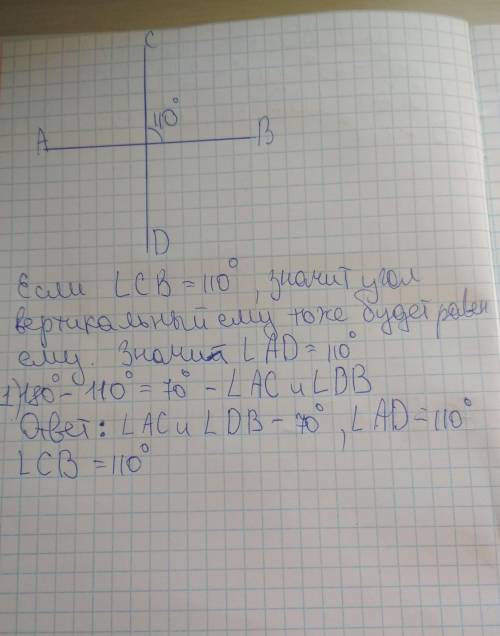 C
110°
A
B
D
Если ∠CB = 110°, значит угол
вертикальный ему тоже будет равен
ему. Значит ∠AD = 110°
1) 180° - 110° = 70° - ∠AC и ∠DB
Ответ: ∠AC и ∠DB - 70°, ∠AD = 110°
∠CB = 110°